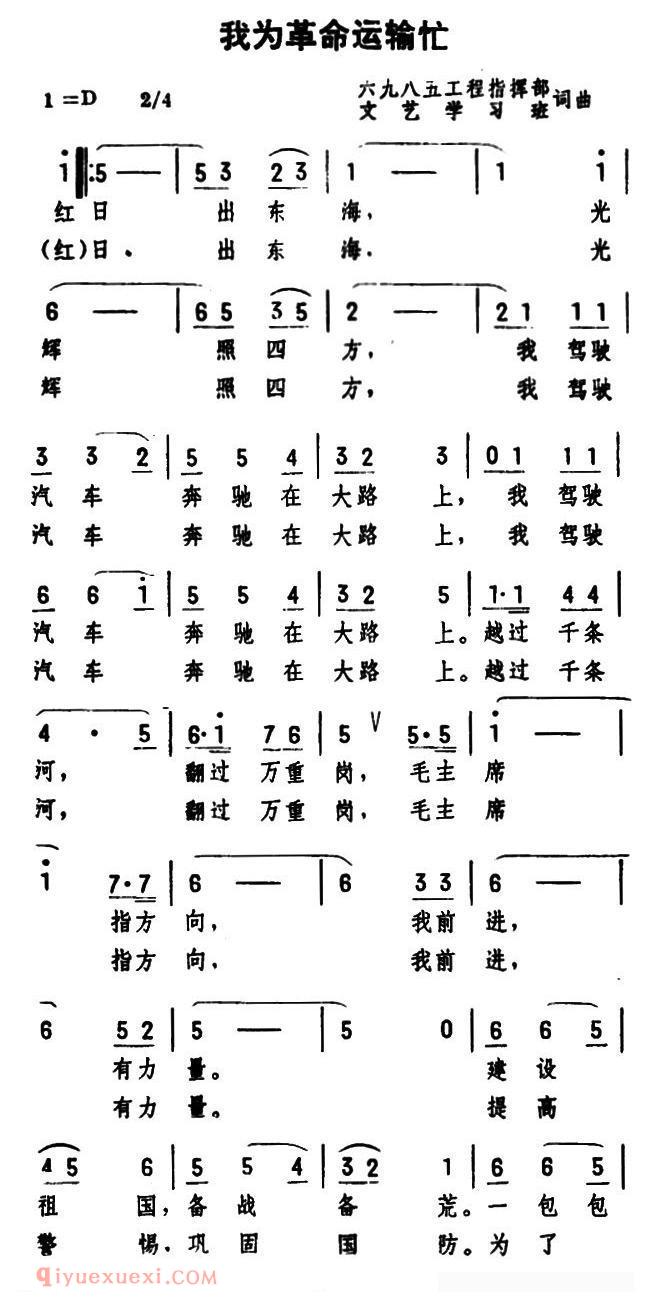 我为革命运输忙
1=D 2/4 六九八五工程指挥部
文艺学习班 词曲
i ‖: 5 — | 5 3 2 3 | 1 — | 1 i |
红日 出东海, 光
(红)日. 出东海. 光
6 — | 6 5 3 5 | 2 — | 2 1 1 1 |
辉 照四方, 我驾驶
辉 照四方, 我驾驶
3 3 2 | 5 5 4 | 3 2 3 | 0 1 1 1 |
汽车 奔驰在大路上, 我驾驶
汽车 奔驰在大路上, 我驾驶
6 6 i | 5 5 4 | 3 2 5 | 1· 1 4 4 |
汽车 奔驰在大路上。越过千条
汽车 奔驰在大路上。越过千条
4 · 5 | 6· i 7 6 | 5 V 5· 5 | i — |
河, 翻过万重岗, 毛主席
河, 翻过万重岗, 毛主席
i 7· 7 | 6 — | 6 3 3 | 6 — |
指方向, 我前进,
指方向, 我前进,
6 5 2 | 5 — | 5 0 | 6 6 5 |
有力量。 建设
有力量。 提高
4 5 6 | 5 5 4 | 3 2 1 | 6 6 5 |
祖国, 备战备荒。一包包
警惕. 巩固国防。为了
qiyuexuexi.com